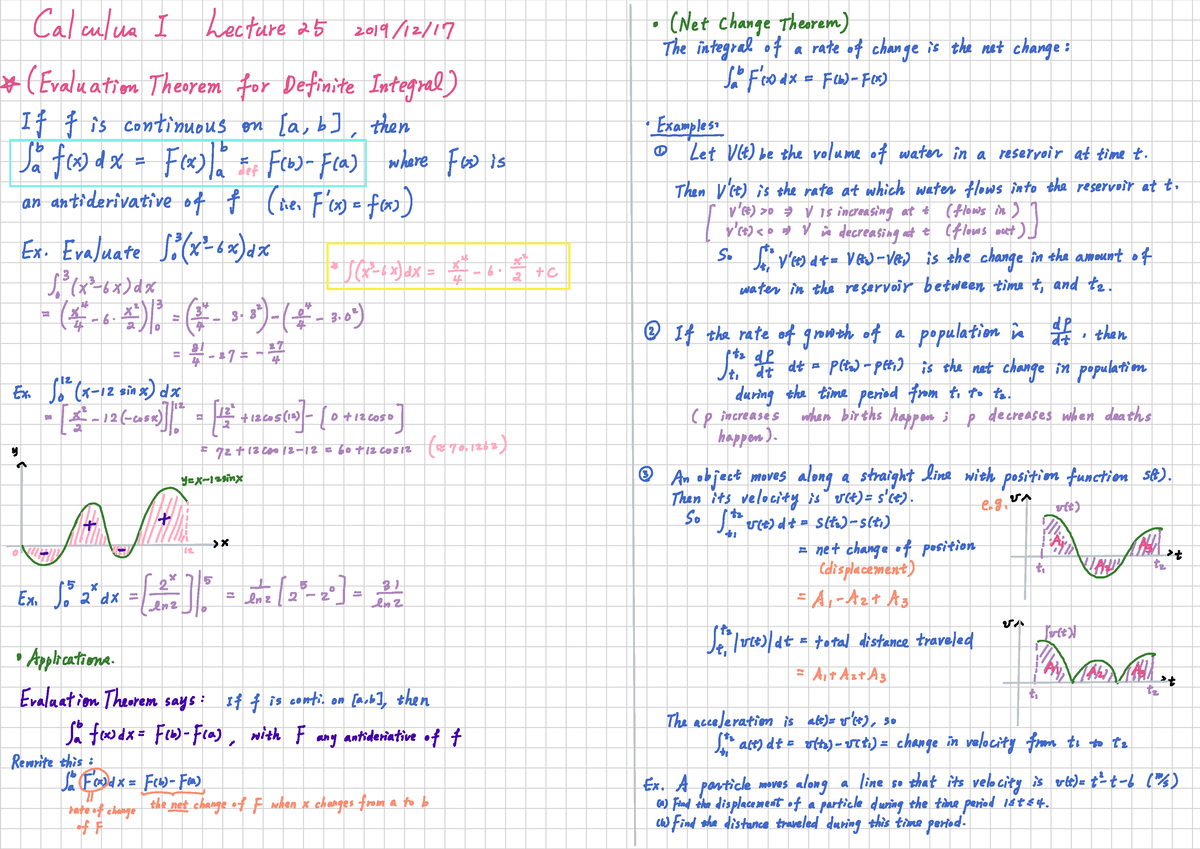 Calculus I Lecture 25 2019/12/17
☆ (Evaluation Theorem for Definite Integral)
If f is continuous on [a, b], then
∫_a^b f(x) dx = F(x)|_a^b =_def F(b)-F(a) where F(x) is
an antiderivative of f (i.e. F'(x) = f(x))
Ex. Evaluate ∫_0^3 (x³-6x)dx
* ∫(x³-6x)dx = x⁴/4 - 6·x²/2 + C
∫_0^3 (x³-6x)dx
= (x⁴/4 - 6·x²/2)|_0^3 = (3⁴/4 - 3·3²)-(0⁴/4 - 3·0²)
= 81/4 - 27 = -27/4
Ex. ∫_0^12 (x-12 sin x) dx
= [x²/2 - 12(-cosx)]|_0^12 = [12²/2 + 12cos(12)] - [0 + 12cos0]
= 72+12cos12-12 = 60+12cos12 (≈70.1262)
y
y=x-12sinx
+ +
0 - - 12 x
Ex. ∫_0^5 2^x dx = [2^x/ln2]|_0^5 = 1/ln2 [2⁵-2⁰] = 31/ln2
• Applications.
Evaluation Theorem says: If f is conti. on [a,b], then
∫_a^b f(x)dx = F(b)-F(a), with F any antideriative of f
Rewrite this:
∫_a^b F'(x)dx = F(b)-F(a)
rate of change the net change of F when x changes from a to b
of F
• (Net Change Theorem)
The integral of a rate of change is the net change:
∫_a^b F'(x) dx = F(b)-F(x)
• Examples:
① Let V(t) be the volume of water in a reservoir at time t.
Then V'(t) is the rate at which water flows into the reservoir at t.
[ V'(t)>0 ⇒ V is increasing at t (flows in)
V'(t)<0 ⇒ V is decreasing at t (flows out) ]
So ∫_t₁^t₂ V'(t) dt = V(t₂)-V(t₁) is the change in the amount of
water in the reservoir between time t₁ and t₂.
② If the rate of growth of a population is dP/dt, then
∫_t₁^t₂ dP/dt dt = P(t₂)-P(t₁) is the net change in population
during the time period from t₁ to t₂.
(P increases when births happen; P decreases when deaths
happen).
③ An object moves along a straight line with position function s(t).
Then its velocity is v(t)=s'(t).
So ∫_t₁^t₂ v(t) dt = s(t₂)-s(t₁)
= net change of position
(displacement)
= A₁-A₂+A₃
e.g. v
v(t)
A₁ A₂ A₃
t₁ t₂ t
∫_t₁^t₂ |v(t)| dt = total distance traveled
= A₁+A₂+A₃
v
|v(t)|
A₁ A₂ A₃
t₁ t₂ t
The acceleration is a(t)=v'(t), so
∫_t₁^t₂ a(t) dt = v(t₂)-v(t₁) = change in velocity from t₁ to t₂
Ex. A particle moves along a line so that its velocity is v(t)=t²-t-6 (m/s)
(a) Find the displacement of a particle during the time period 1≤t≤4.
(b) Find the distance traveled during this time period.